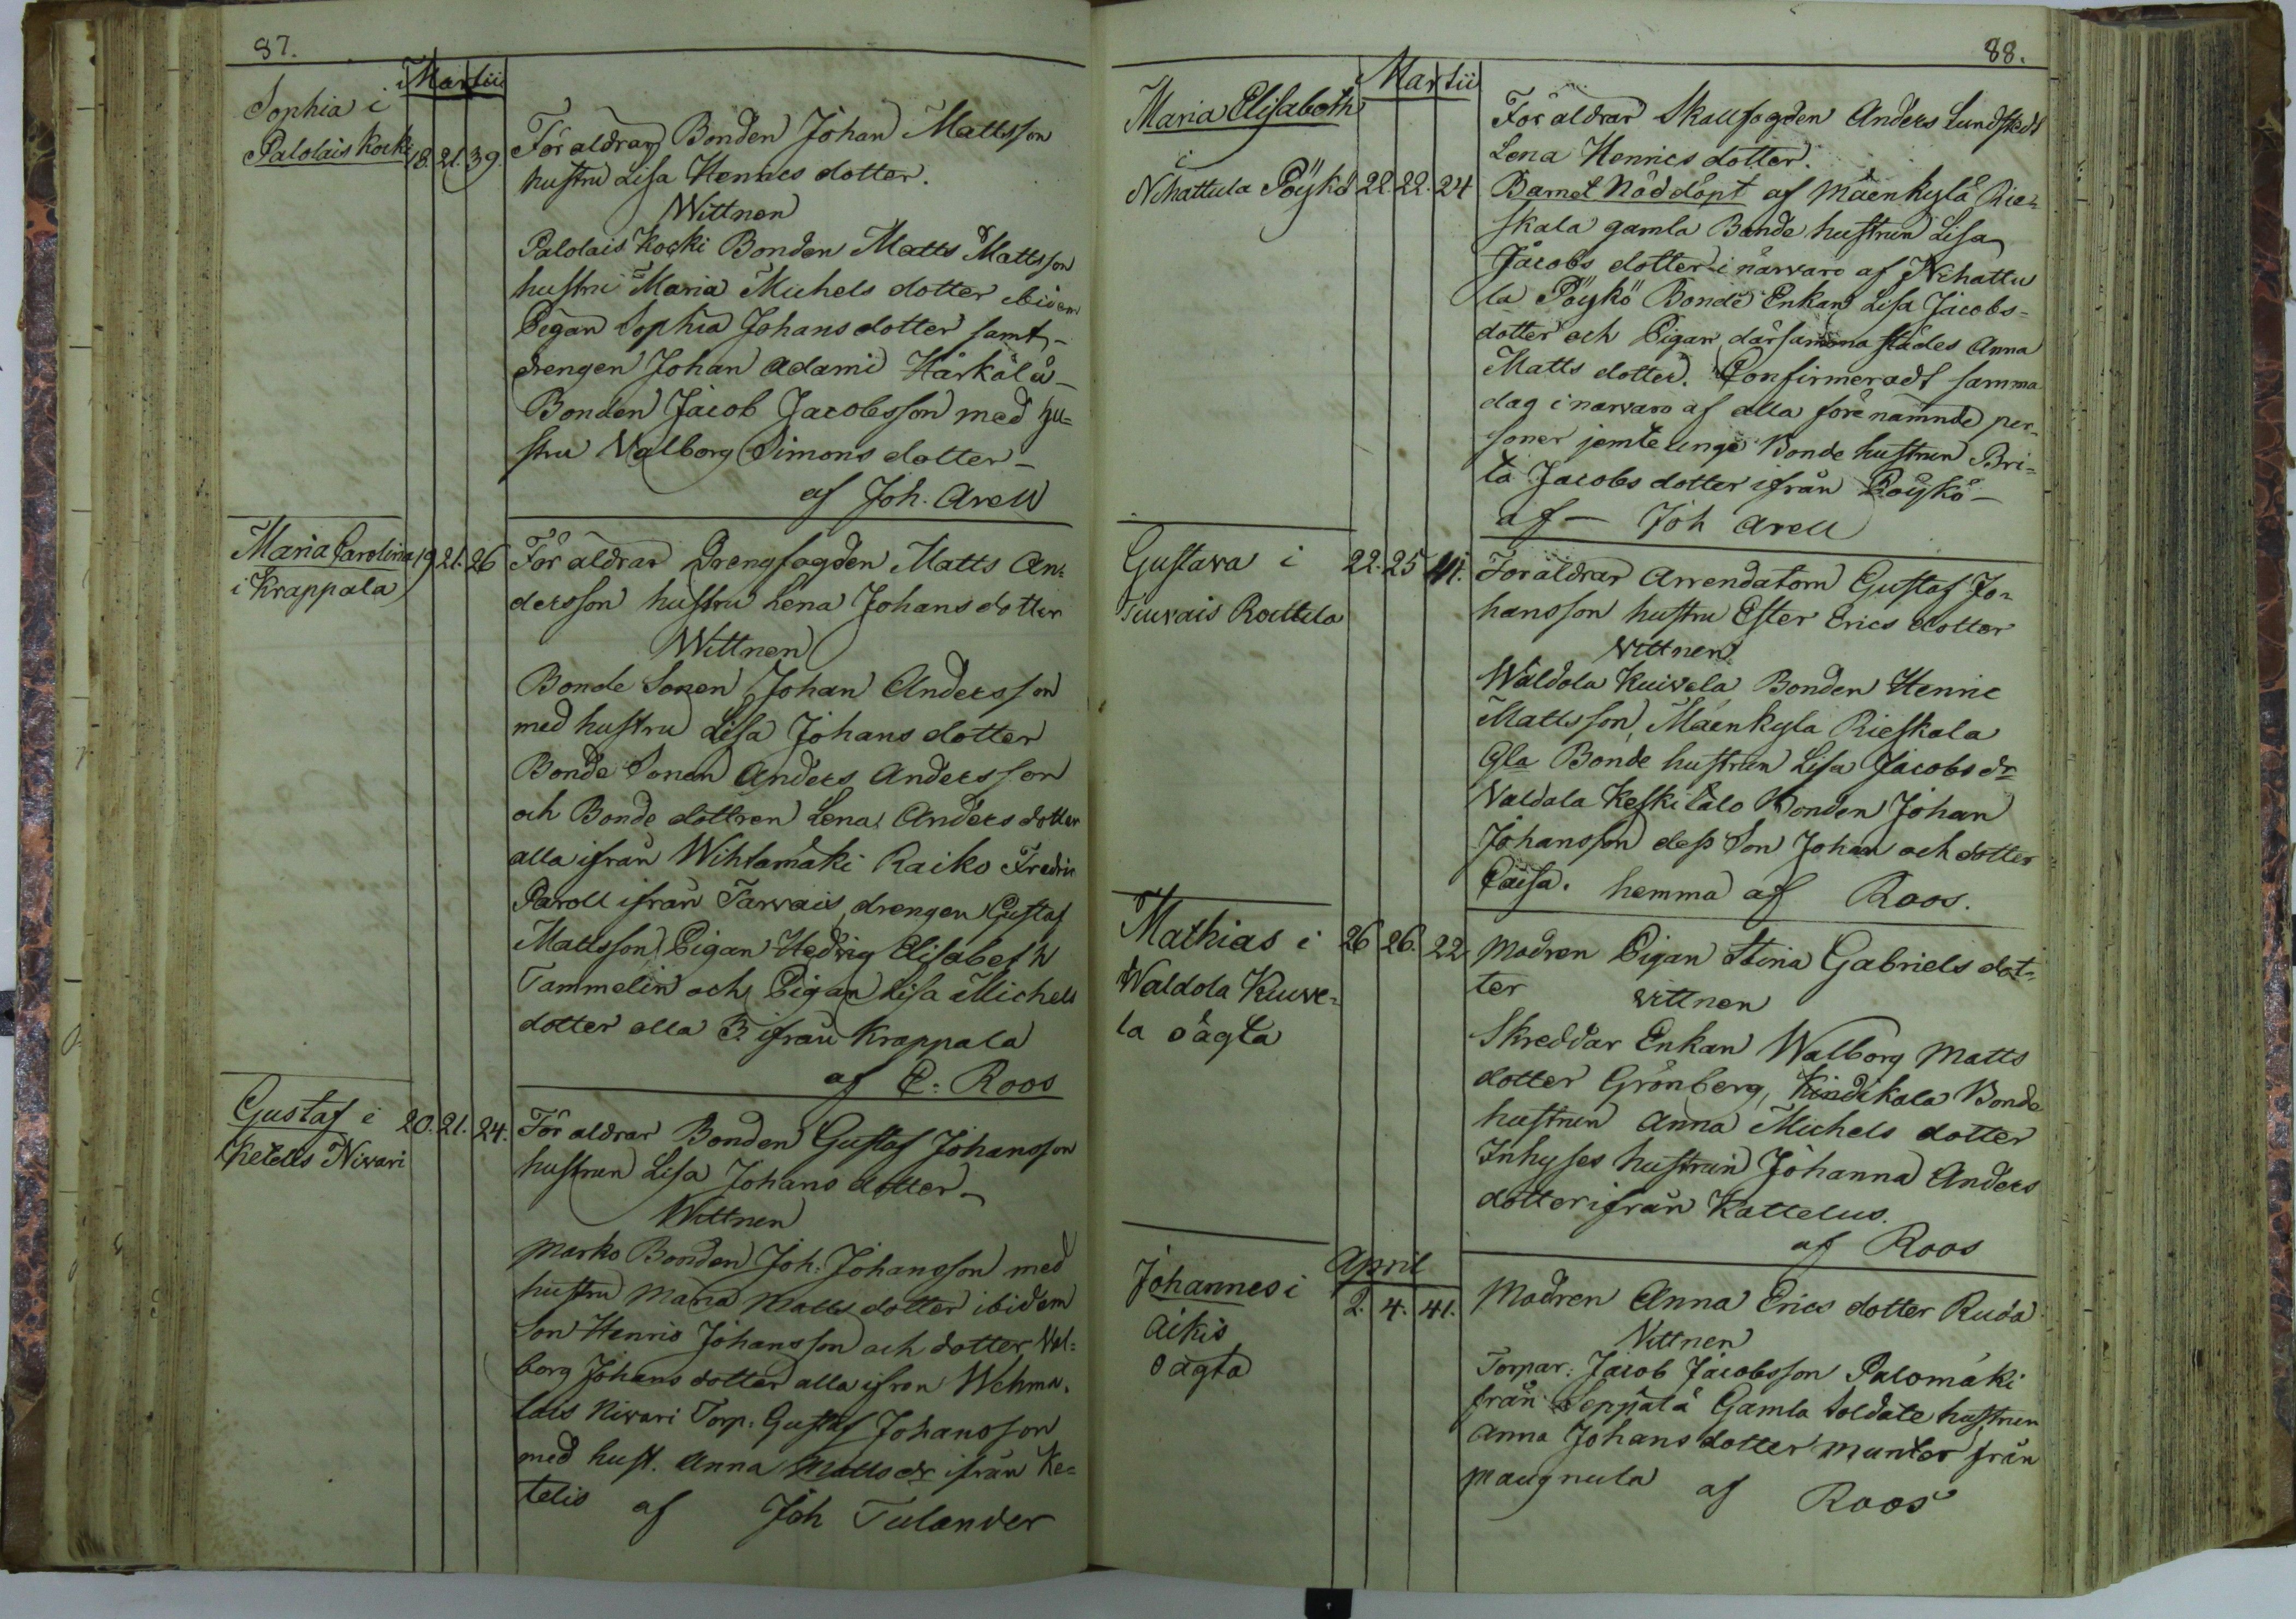 87.
Martii
Sophia i
Palolais Kocki 18. 21. 39.
Föräldrar Bonden Johan Mattsson
hustru Lisa Henrics dotter.
Wittnen
Palolais Kocki Bonden Matts Mattsson
hustru Maria Michels dotter ibidem
Pigan Sophia Johans dotter samt
drengen Johan Adami Härkälä
Bonden Jacob Jacobsson med hu-
stru Valborg Simons dotter
af Joh. Arell
Maria Carolina 19 21. 26
i Krappala
Föräldrar Drengfogden Matts An-
dersson hustru Lena Johans dotter
Wittnen
Bonde Sonen Johan Andersson
med hustru Lisa Johans dotter
Bonde Sonen Anders Andersson
och Bonde dottren Lena Anders dotter
alla ifrån Wihtamäki Raiko Fredric
Paroll ifrån Tarvais, drengen Gustaf
Mattsson, Pigan Hedvig Elisabeth
Tammelin och Pigan Lisa Michels
dotter alla 3 ifrån Krappala
af E. Roos
Gustaf i 20. 21. 24.
Ketelis Nivari
Föräldrar Bonden Gustaf Johansson
hustrun Lisa Johans dotter
Wittnen
Marko Bonden Joh. Johansson med
hustru Maria Matts dotter ibidem
Son Henric Johansson och dotter Val-
borg Johans dotter alla ifron Wehma,
lais Nivari Torp. Gustaf Johansson
med hust. Anna Matts dr ifrån Ke-
telis af Joh Tulander
88.
Martii
Maria Elisabeth
i
Nihattula Pöykö 22. 22. 24
Föräldrar Skallfogden Anders Lundstedt
Lena Henrics dotter.
Barnet Nöddöpt af Mäenkylä Rie-
skala gamla Bonde hustrun Lisa
Jacobs dotter i närvaro af Nihattu
la Pöykö Bonde Enkan Lisa Jacobs-
dotter och Pigan därsammastädes Anna
Matts dotter. Confirmeradt samma
dag i närvaro af alla förenämnde per-
soner jemte unga Bonde hustrun Bri-
ta Jacobs dotter ifrån Pöykö
af Joh Arell
Gustava i 22. 25 41.
Tuvais Rattula
Föräldrar Arrendatorn Gustaf Jo-
hansson hustru Ester Erics dotter
Vittnen
Waldola Kuivela Bonden Henric
Mattsson, Mäenkyla Rieskala
Gla Bonde hustrun Lisa Jacobs dr
Valdala Keskitalo Bonden Johan
Johansson dess Son Johan och dotter
Caisa. hemma af Roos.
Mathias i 26 26. 22
Waldola Kuive-
la oägta
Modren Pigan Stina Gabriels dot-
ter Vittnen
Skreddar Enkan Walborg Matts
dotter Grönberg, Kindikala Bonde
hustrun Anna Michels dotter
Inhyses hustrun Johanna Anders
dotter ifrån Kattelus.
af Roos
April
Johannes i 2. 4. 41.
Äikis
oägta
Modren Anna Erics dotter Ruda
Vittnen
Torpar. Jacob Jacobsson Palomäki
från Seppälä Gamla Soldate hustrun
Anna Johans dotter Munter från
Maugnula af Roos